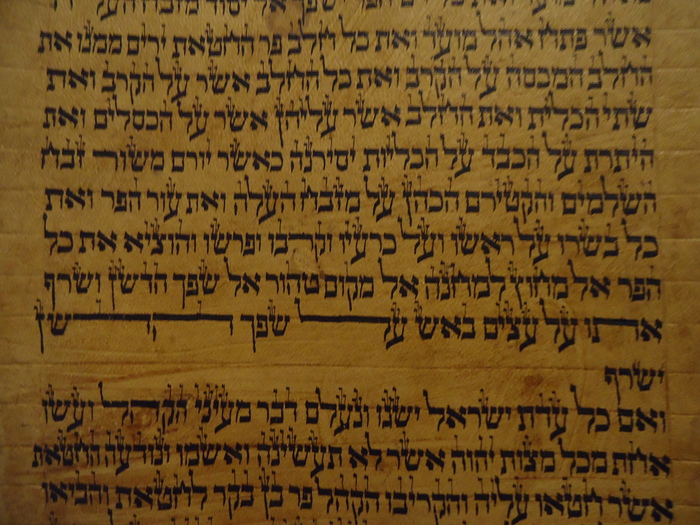 אל יסוד מזבח העלה
אשר פתח אהל מועד ואת כל חלב פר החטאת ירים ממנו את
החלב המכסה על הקרב ואת כל החלב אשר על הקרב ואת
שתי הכלית ואת החלב אשר עליהן אשר על הכסלים ואת
היתרת על הכבד על הכליות יסירנה כאשר יורם משור זבח
השלמים והקטירם הכהן על מזבח העלה ואת עור הפר ואת
כל בשרו על ראשו ועל כרעיו וקרבו ופרשו והוציא את כל
הפר אל מחוץ למחנה אל מקום טהור אל שפך הדשן ושרף
אתו על עצים באש על שפך הדשן
ישרף
ואם כל עדת ישראל ישגו ונעלם דבר מעיני הקהל ועשו
אחת מכל מצות יהוה אשר לא תעשינה ואשמו ונודעה החטאת
אשר חטאו עליה והקריבו הקהל פר בן בקר לחטאת והביאו